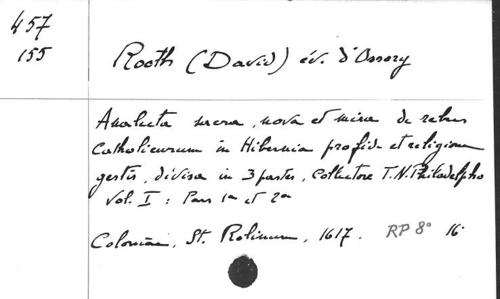 457
155
Rooth (David) év. d'Ossory
Analecta sacra, nova et mira de rebus
Catholicorum in Hibernia pro fide et religione
gestis, divisa in 3 partes, Collectore T.N. Philadelpho
Vol. I : Pars 1a et 2a
Coloniae, St. Rolinum, 1617. RP 8° 16